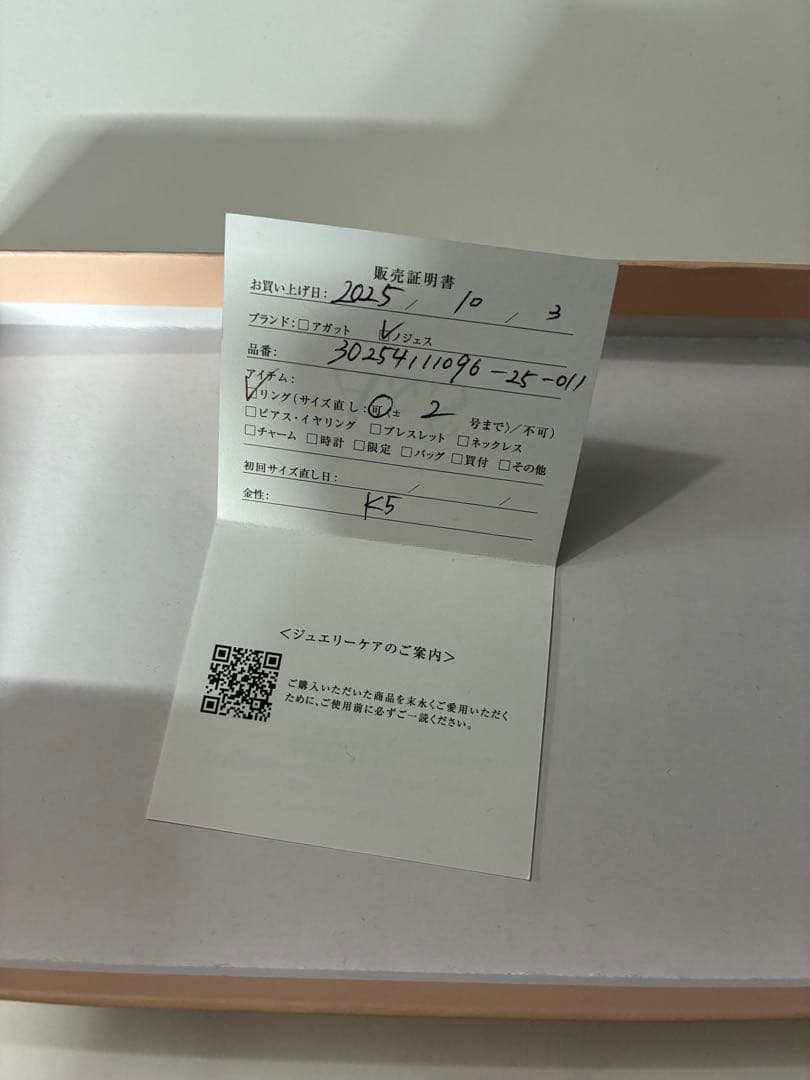 販売証明書
お買い上げ日: 2025 / 10 / 3
ブランド: □アガット ☑ノジェス
品番: 30254111096-25-011
アイテム:
☑リング(サイズ直し:可(± 2 号まで)/不可)
□ピアス・イヤリング □ブレスレット □ネックレス
□チャーム □時計 □限定 □バッグ □買付 □その他
初回サイズ直し日: / /
金性: K5
<ジュエリーケアのご案内>
ご購入いただいた商品を末永くご愛用いただく
ために、ご使用前に必ずご一読ください。